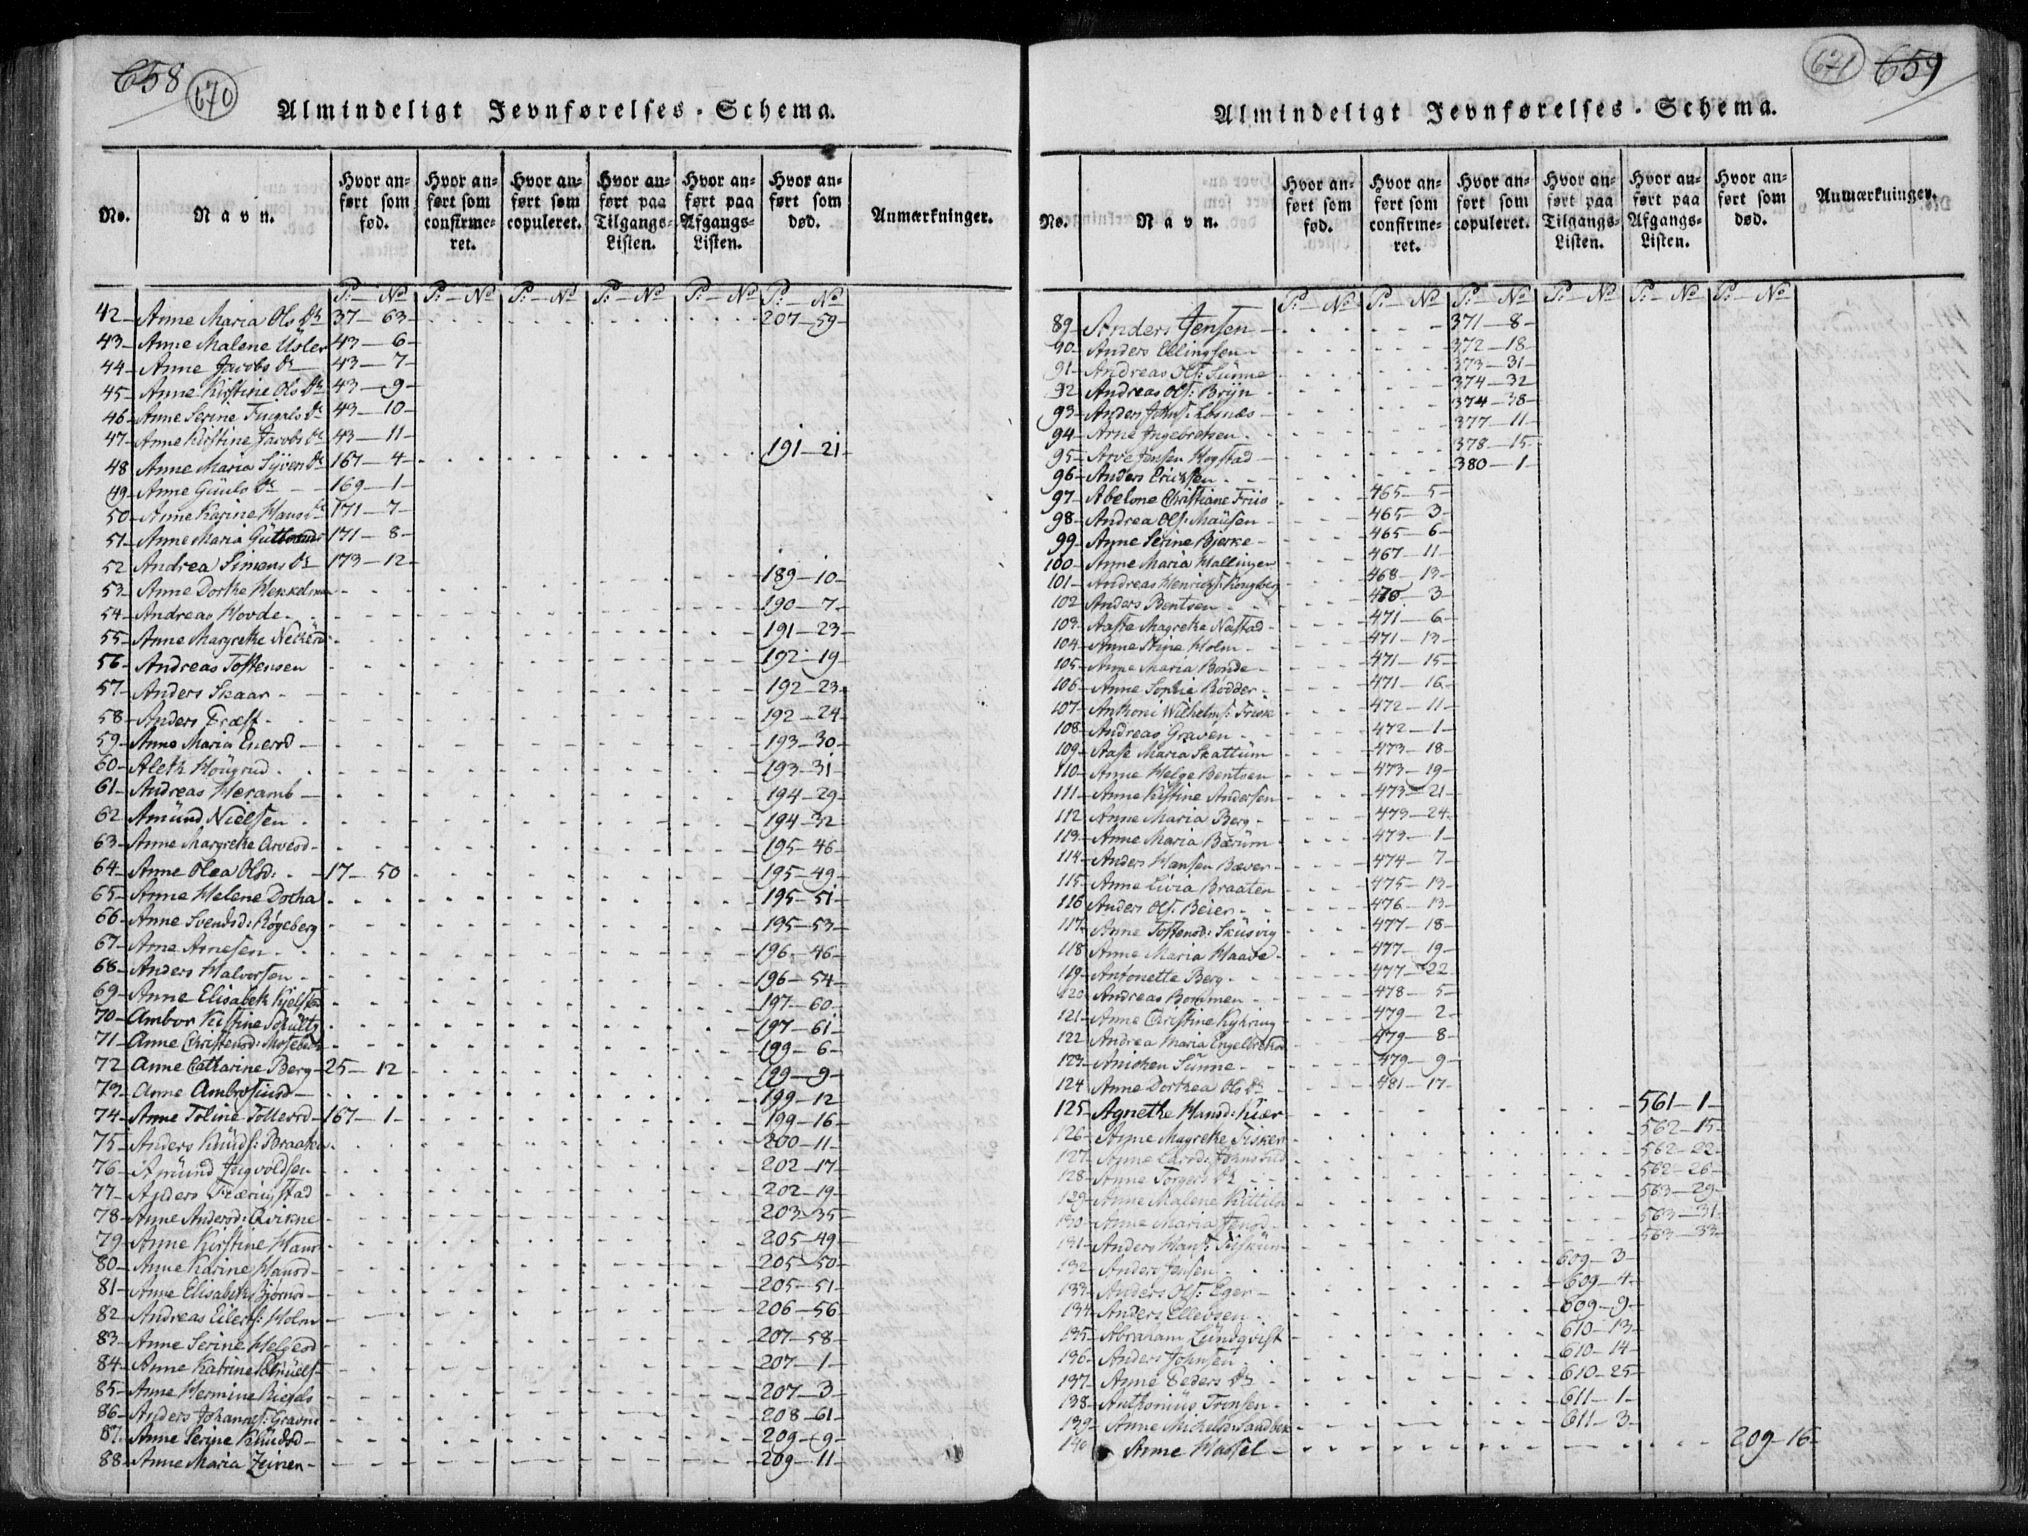 658 670
Almindeligt Jevnførelses-Schema.
No. Navn. Hvor anført som fød. Hvor anført som confirmeret. Hvor anført som copuleret. Hvor anført paa Tilgangs-Listen. Hvor anført paa Afgangs-Listen. Hvor anført som død. Anmærkninger.
P. — No P. — No P. — No P. — No P. — No P. — No
42 Anne Maria Ols Dr 37—63 207—59
43 Anne Malene 43—6
44 Anne Jacobs Dr 43—7
45 Anne Kirstine Ols Dr 43—9
46 Anne Serine Dr 43—10
47 Anne Kirstine Jacobs Dr 43—11
48 Anne Maria Siven Dr 167—4 191—21
49 Anne Dr 169—1
50 Anne Karine Hans Dr 171—7
51 Anne Maria 171—8
52 Andrea Simens Dr 173—12
53 Anne Dorthe 189—10
54 Andreas Hovde 190—7
55 Anne Margrethe 191—23
56 Andreas Tostensen 192—19
57 Anders Skaar 192—23
58 Anders 192—24
59 Anne Maria 193—30
60 Aleth 193—31
61 Andreas Heramb 194—29
62 Amünd Nielsen 194—32
63 Anne Margrethe 195—46
64 Anne Olea Olsd: 17—50 195—49
65 Anne Helene Dotha 195—51
66 Anne Svendsd: Røgeberg 195—53
67 Arne Arnesen 196—46
68 Anders Halvorsen 196—54
69 Anne Elisabeth 197—60
70 Ambor Kistine Schültz 197—61
71 Anne 199—6
72 Anne Catharine Berg 25—12 199—9
73 Anne Ambrosiusd 199—12
74 Anne Toline Tollersd 167—1 199—16
75 Anders Knüds: Braathen 200—11
76 Amünd Ingvoldsen 202—17
77 Anders 202—19
78 Anne Andersd: Qvikne 203—35
79 Anne Kirstine Hansd 205—49
80 Anne Karine Hansd 205—50
81 Anne Elisabeth Bjørnsd 205—51
82 Andreas Eilerts: Holm 206—56
83 Anne Serine Helgesd 207—58
84 Anne Katrine 207—1
85 Anne Hermine Riegels 207—3
86 Anders Johannes: 208—61
87 Anne Serine Knüdsd 209—9
88 Anne Maria 209—11
671 659
Almindeligt Jevnførelses-Schema.
No. Navn. Hvor anført som fød. Hvor anført som confirmeret. Hvor anført som copuleret. Hvor anført paa Tilgangs-Listen. Hvor anført paa Afgangs-Listen. Hvor anført som død. Anmærkninger.
P. — No P. — No P. — No P. — No P. — No P. — No
89 Anders Jensen 371—8
90 Anders Ellingsen 372—18
91 Andreas Ols: Sünne 373—31
92 Andreas Ols: Bryn 374—32
93 Anders Johns: 374—38
94 Arne Ingebretsen 377—11
95 Arve Jensen Hogstad 378—15
96 Anders Ericksen 380—1
97 Abelone Christiane Friis 465—5
98 Andrea Ols: 465—3
99 Anne Serine Bjerke 465—6
100 Anne Maria Hallingen 467—11
101 Andreas Henrichs: Kongberg 468—13
102 Anders Bentsen 470—3
103 Aaste Magrethe Nøstad 471—6
104 Anne Stine Holm 471—13
105 Anne Maria Bonde 471—15
106 Anne Sophie Rødder 471—16
107 Anthoni Wilhelms: Friis 472—11
108 Andreas Graven 472—1
109 Aase Maria Skattüm 473—18
110 Anne Helge Bentsen 473—19
111 Anne Kistine Andersen 473—21
112 Anne Maria Berg 473—24
113 Anne Maria Bærüm 473—1
114 Anders Hansen Bæver 474—7
115 Anne Livia Braaten 475—13
116 Anders Ols: Beier 476—13
117 Anne Tostensd: Sküsvig 477—18
118 Anne Maria Haave 477—19
119 Antonette Berg 477—22
120 Andreas Bommen 478—5
121 Anne Christine 479—2
122 Andrea Maria 479—8
123 Anicken Sünne 479—9
124 Anne Dorthea Ols Dr 481—17
125 Agnethe Hansd: Kiær 561—1
126 Anne Magrethe Fisker 562—15
127 Anne Larsd: 562—22
128 Anne Torgers Dr 562—26
129 Anne Malene 563—29
130 Anne Maria 563—31
131 Anders Hans: 563—33
132 Anders Jensen 609—3
133 Anders Ols: Eger 609—4
134 Anders Ellevsen 609—9
135 Abraham Lündqvist 610—13
136 Anders Johnsen 610—14
137 Anne Peders Dr 610—25
138 Anthonius Tronsen 611—1
139 Anne Michelsd: Sandbek 611—3
140 Anne Hassel 209—16